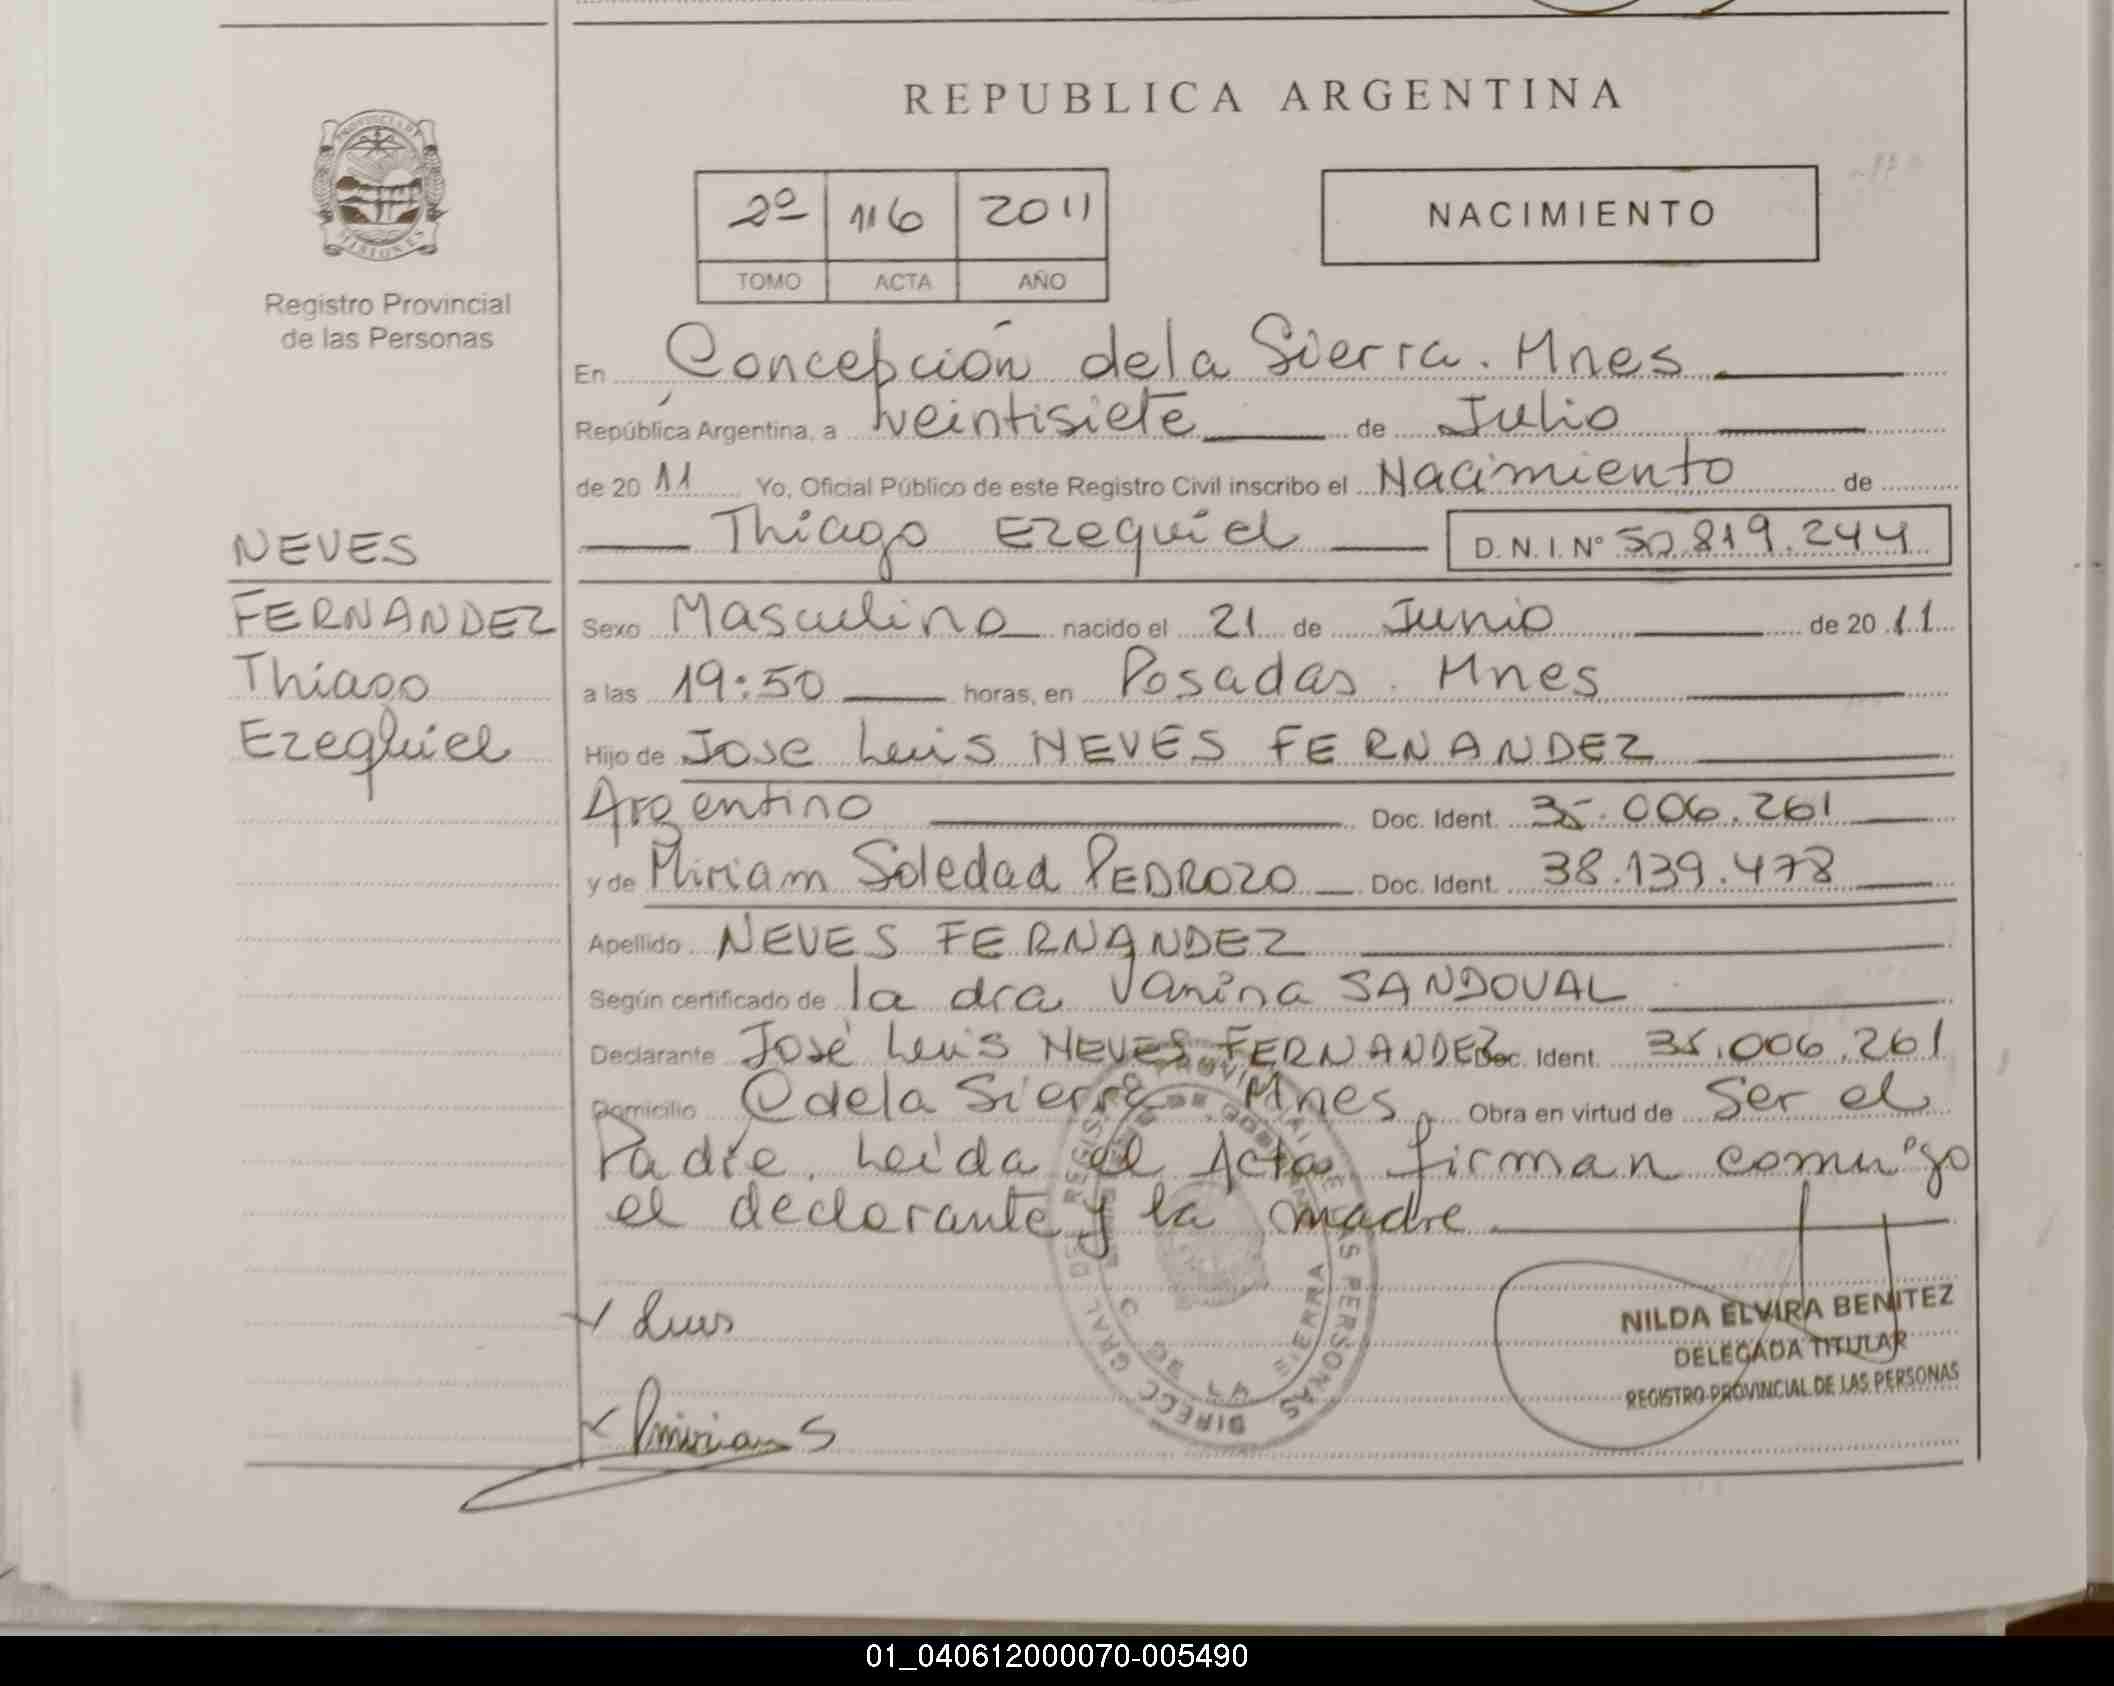 REPUBLICA ARGENTINA
PROVINCIA DE
MISIONES
Registro Provincial
de las Personas
2º 116 2011
TOMO ACTA AÑO
NACIMIENTO
En Concepción de la Sierra. Mnes
República Argentina, a veintisiete de Julio
de 2011 Yo, Oficial Público de este Registro Civil inscribo el Nacimiento de
Thiago Ezequiel D.N.I.Nº 50.819.244
NEVES
FERNANDEZ
Thiago
Ezequiel
Sexo Masculino nacido el 21 de Junio de 2011
a las 19:50 horas, en Posadas. Mnes
Hijo de Jose Luis NEVES FERNANDEZ
Argentino Doc. Ident. 35.006.261
y de Miriam Soledad PEDROZO Doc. Ident. 38.139.478
Apellido NEVES FERNANDEZ
Según certificado de la dra Vanina SANDOVAL
Declarante José Luis NEVES FERNANDEZ Doc. Ident. 35.006.261
Domicilio C de la Sierra. Mnes Obra en virtud de Ser el
Padre. Leida el Acta firman comigo
el declarante y la madre
Luis
Mirian S
NILDA ELVIRA BENITEZ
DELEGADA TITULAR
REGISTRO PROVINCIAL DE LAS PERSONAS
01_040612000070-005490